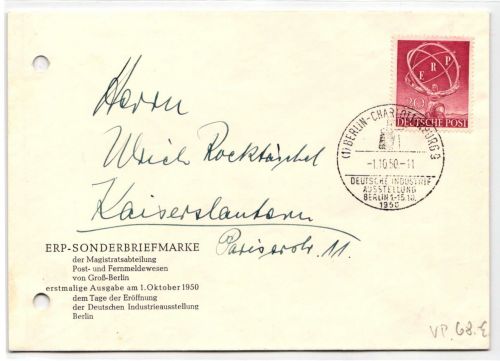 ERP
20
DEUTSCHE POST
(1) BERLIN-CHARLOTTENBURG 3
-1.10.50.-11
DEUTSCHE INDUSTRIE
AUSSTELLUNG
BERLIN 1.-15.10.
1950
Herrn
Ulrich Rocktäschel
Kaiserslautern
Pariserstr. 11.
ERP-SONDERBRIEFMARKE
der Magistratsabteilung
Post- und Fernmeldewesen
von Groß-Berlin
erstmalige Ausgabe am 1. Oktober 1950
dem Tage der Eröffnung
der Deutschen Industrieausstellung
Berlin
VP. 68.€